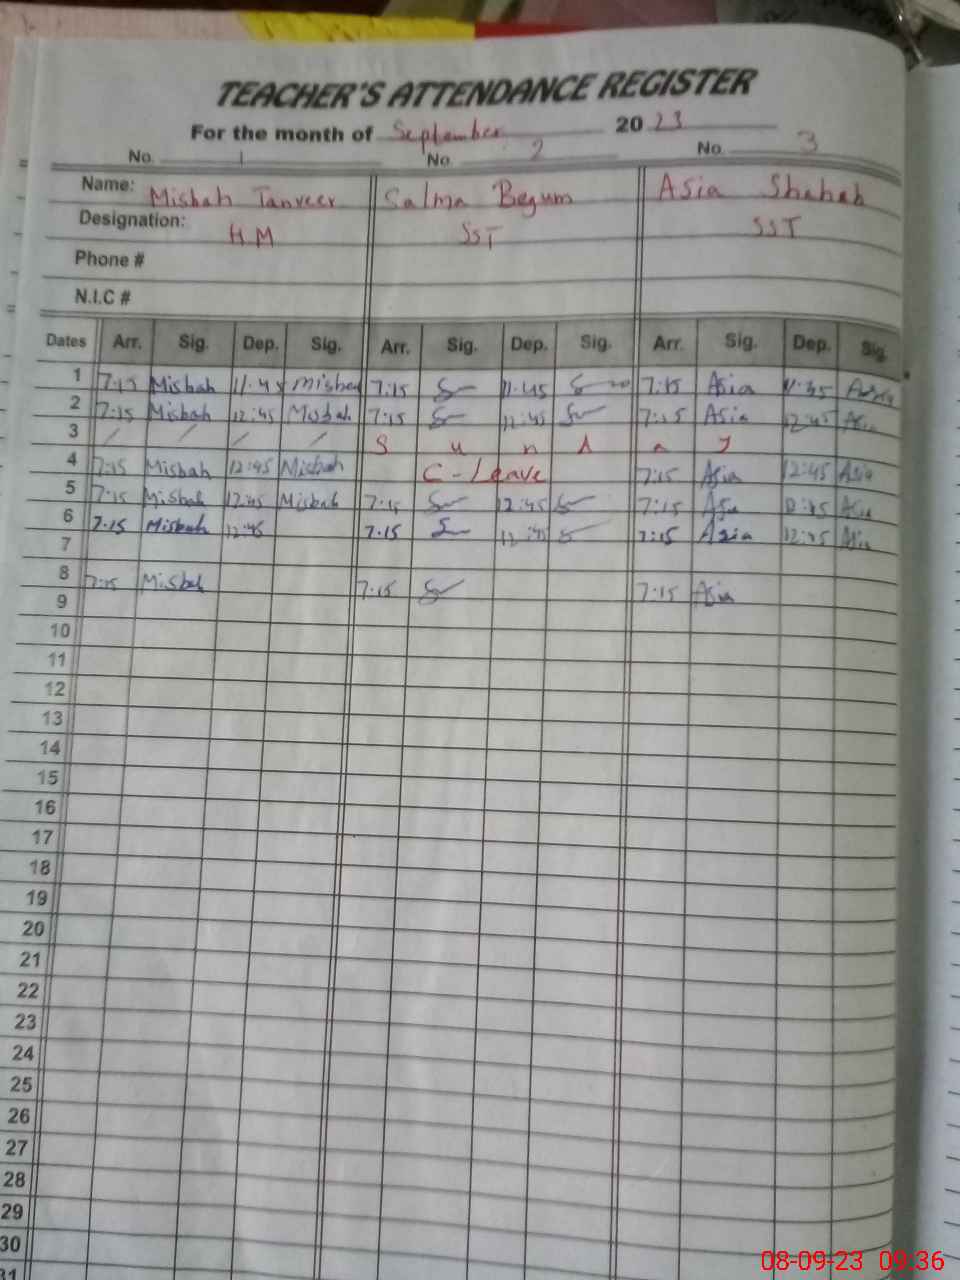 TEACHER'S ATTENDANCE REGISTER
For the month of September 2023
No. 1 No. 2 No. 3
Name: Misbah Tanveer Salma Begum Asia Shahab
Designation: HM SST SST
Phone #
N.I.C #
Dates Arr. Sig. Dep. Sig. Arr. Sig. Dep. Sig. Arr. Sig. Dep. Sig.
1 7:15 Misbah 11:45 Misbah 7:15 11:45 7:15 Asia Asia
2 7:15 Misbah 12:45 Misbah 7:15 12:45 7:15 Asia 12:45 Asia
3 / / / / S u n d a y
4 7:15 Misbah 12:45 Misbah C-Leave 7:15 Asia 12:45 Asia
5 7:15 Misbah 12:45 Misbah 7:15 12:45 7:15 Asia 12:45 Asia
6 7.15 Misbah 12:45 7.15 12:45 7:15 Asia 12:45 Asia
7
8 7:15 Misbah 7:15 7:15 Asia
9
10
11
12
13
14
15
16
17
18
19
20
21
22
23
24
25
26
27
28
29
30
31
08-09-23 09.36